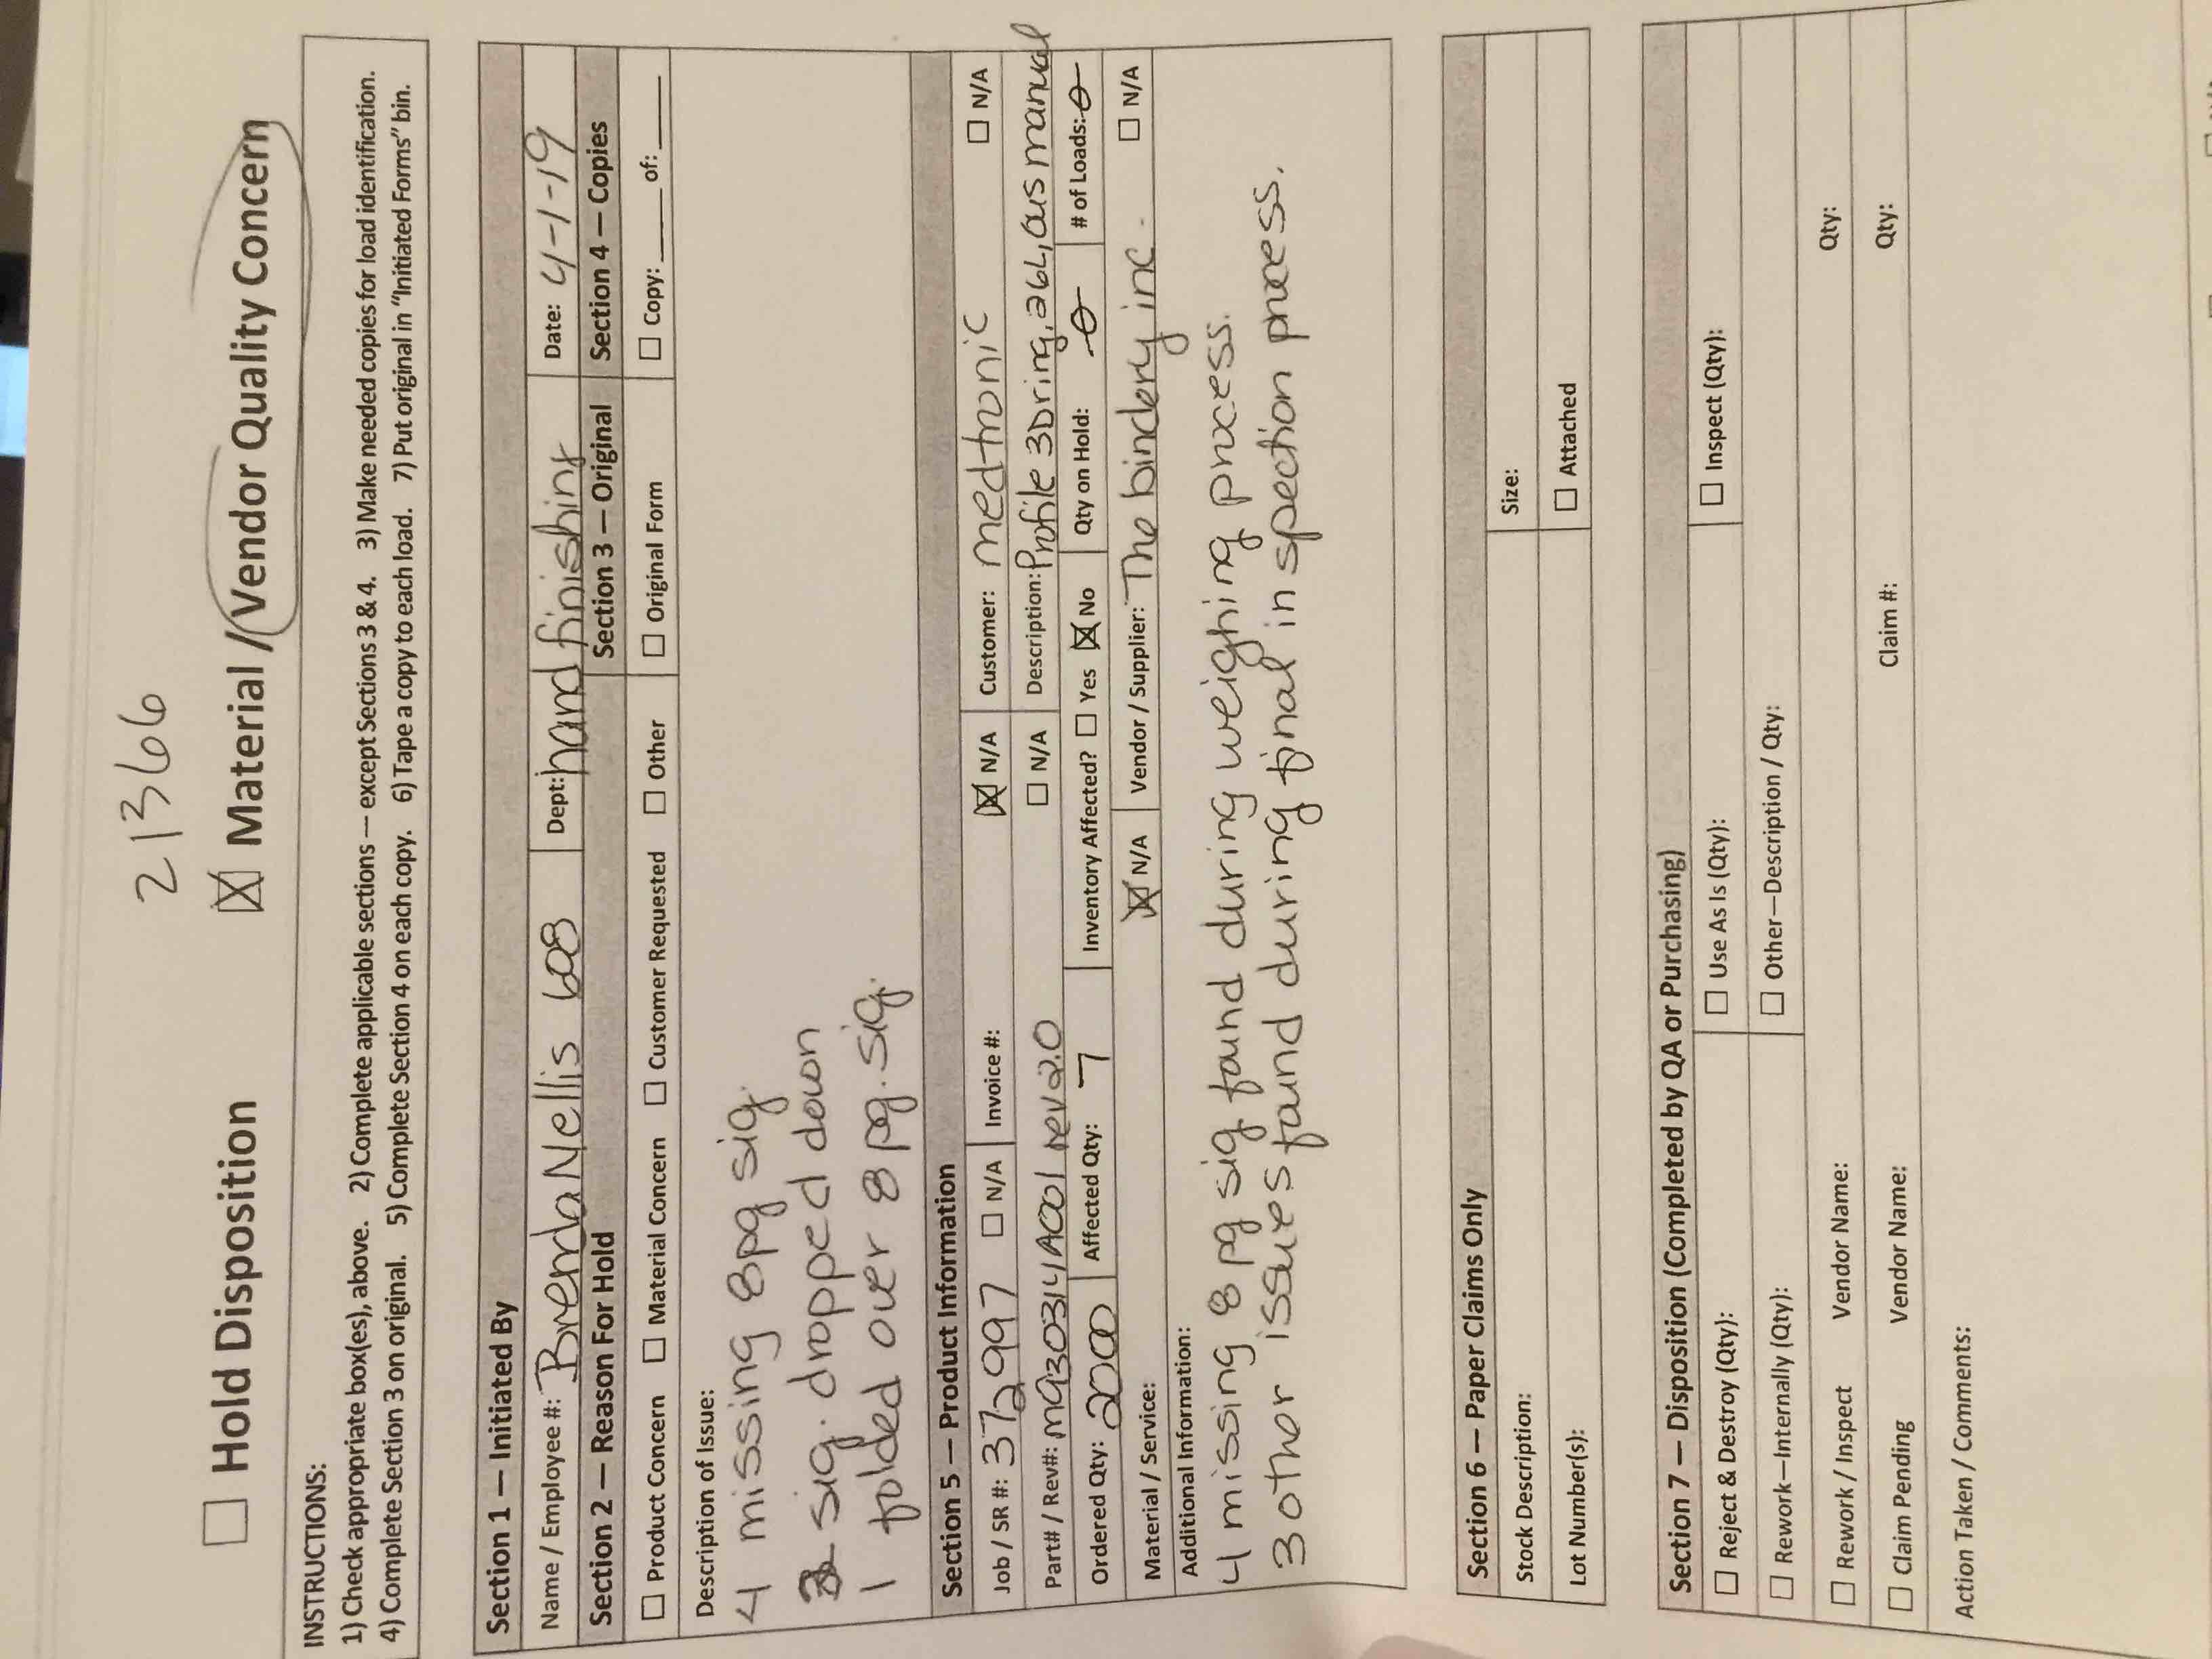 21366
☐ Hold Disposition ☒ Material / Vendor Quality Concern
INSTRUCTIONS:
1) Check appropriate box(es), above. 2) Complete applicable sections — except Sections 3 & 4. 3) Make needed copies for load identification.
4) Complete Section 3 on original. 5) Complete Section 4 on each copy. 6) Tape a copy to each load. 7) Put original in "Initiated Forms" bin.
Section 1 — Initiated By
Name / Employee #: Brenda Nellis 608 Dept: hand finishing Date: 4-1-19
Section 2 — Reason For Hold Section 3 — Original Section 4 — Copies
☐ Product Concern ☐ Material Concern ☐ Customer Requested ☐ Other ☐ Original Form ☐ Copy: ____ of: ____
Description of Issue:
4 missing 8pg sig.
2 sig. dropped down
1 folded over 8 pg. sig.
Section 5 — Product Information
Job / SR #: 37297 ☐ N/A Invoice #: ☒ N/A Customer: medtronic ☐ N/A
Part# / Rev#: M930314A001 rev2.0 ☐ N/A Description: Profile 3Dring, 26L, aus manual
Ordered Qty: 2000 Affected Qty: 7 Inventory Affected? ☐ Yes ☒ No Qty on Hold: 0 # of Loads: 0
Material / Service: ☒ N/A Vendor / Supplier: The bindery inc. ☐ N/A
Additional Information:
4 missing 8 pg sig found during weighing process.
3 other issues found during final inspection process.
Section 6 — Paper Claims Only
Stock Description: Size:
Lot Number(s): ☐ Attached
Section 7 — Disposition (Completed by QA or Purchasing)
☐ Reject & Destroy (Qty): ☐ Use As Is (Qty): ☐ Inspect (Qty):
☐ Rework—Internally (Qty): ☐ Other—Description / Qty:
☐ Rework / Inspect Vendor Name: Qty:
☐ Claim Pending Vendor Name: Claim #: Qty:
Action Taken / Comments: